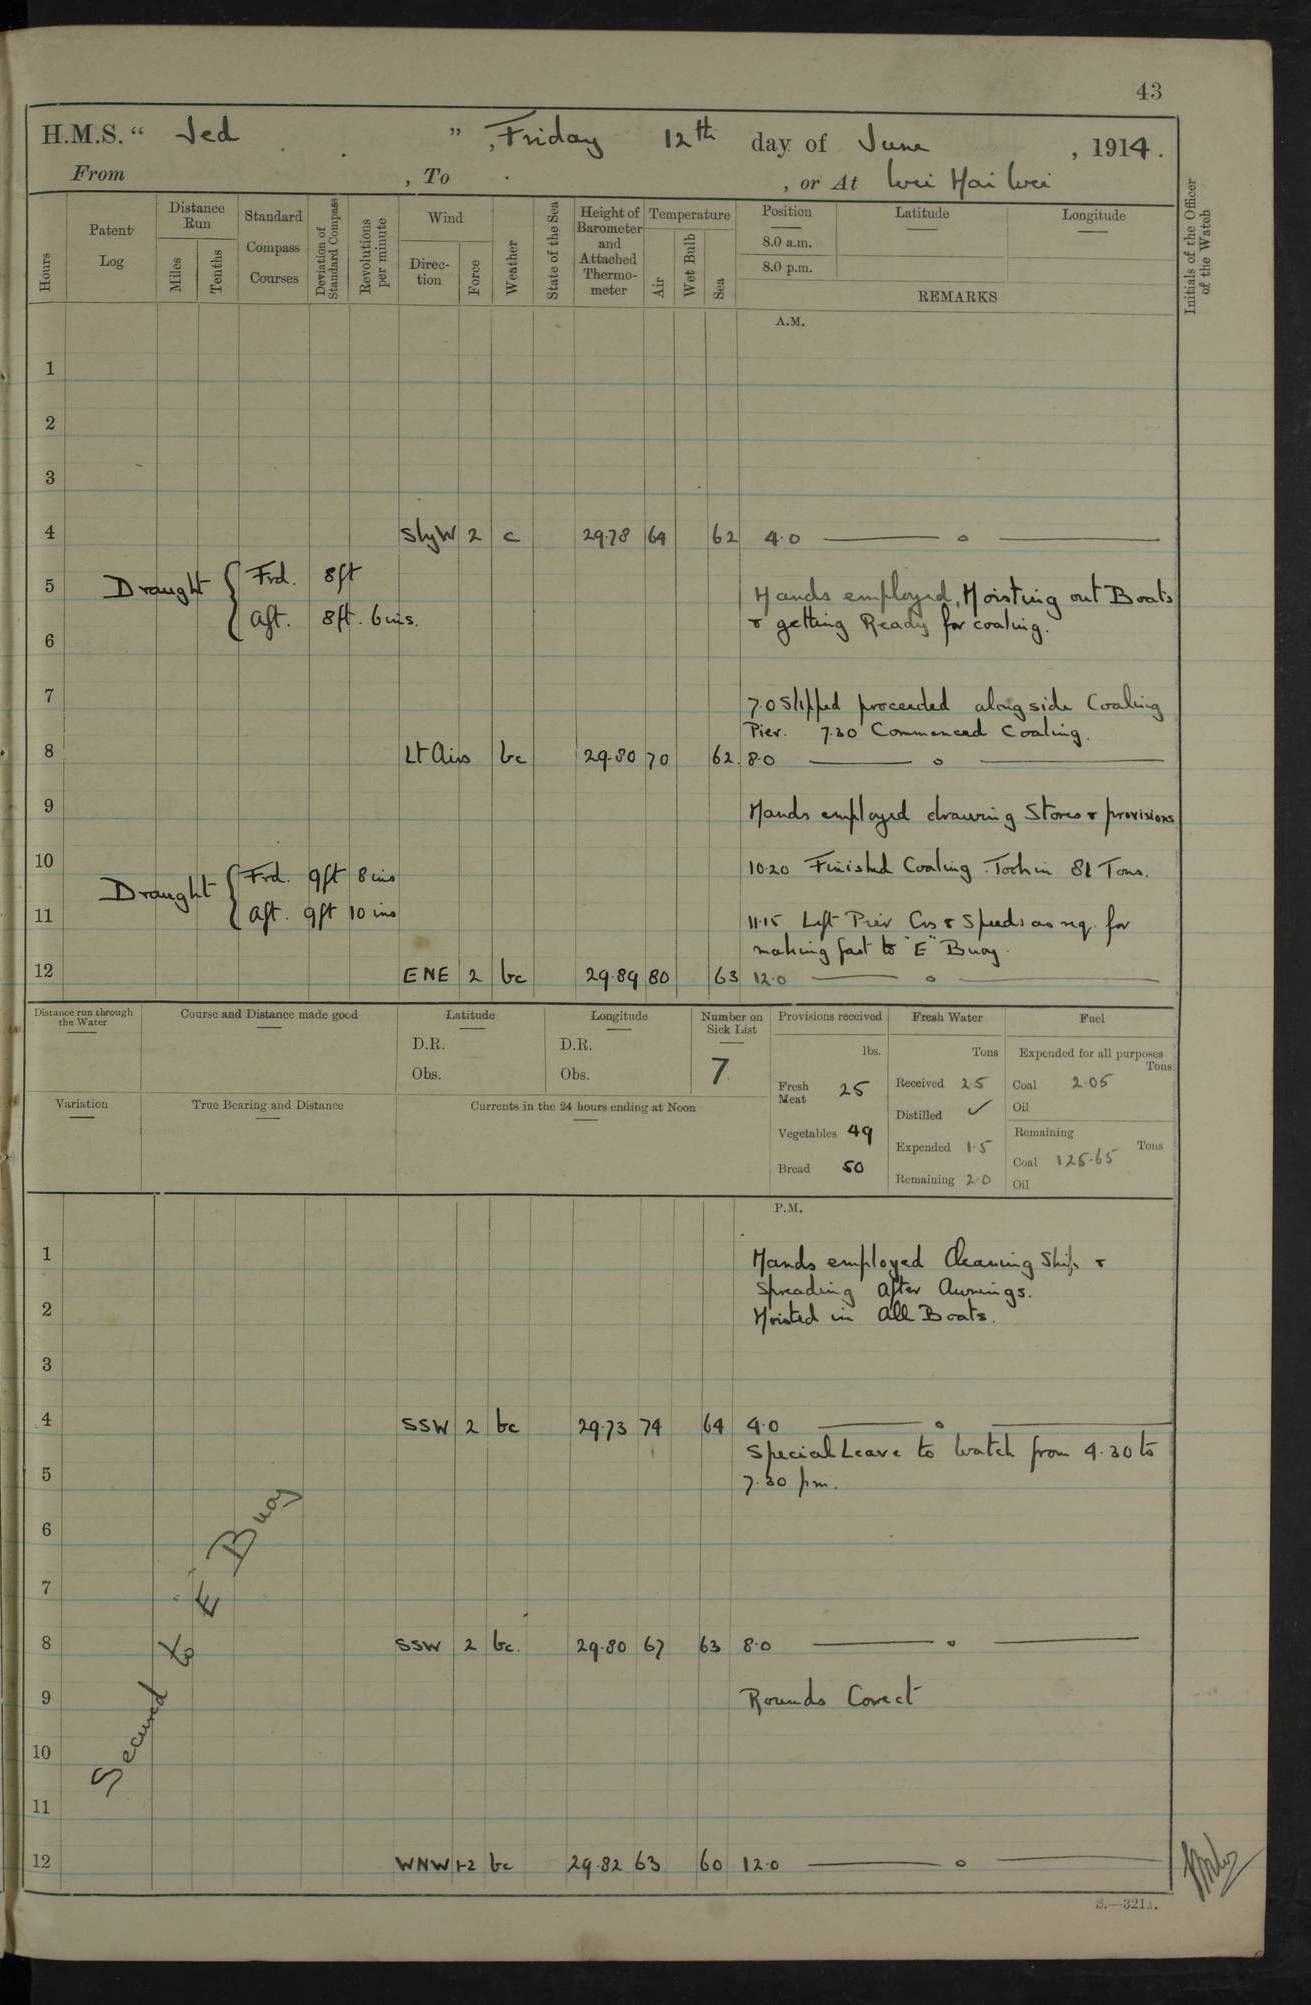 43
H.M.S. " Jed ", Friday 12th day of June, 1914.
From , To , or At Wei Hai Wei
Hours
Patent Log
Distance Run
Miles
Tenths
Standard Compass Courses
Deviation of Standard Compass
Revolutions per minute
Wind
Direction
Force
Weather
State of the Sea
Height of Barometer and Attached Thermometer
Temperature
Air
Wet Bulb
Sea
Position
8.0 a.m.
8.0 p.m.
Latitude
Longitude
REMARKS
Initials of the Officer of the Watch
A.M.
1
2
3
4 SbyW 2 c 29.78 64 62 4.0 — o —
5 Draught { Frd. 8ft
Aft. 8ft. 6ins.
Hands employed, Hoisting out Boats
& getting Ready for coaling.
6
7 7.0 Slipped proceeded alongside Coaling
Pier. 7.30 Commenced Coaling.
8 Lt Airs bc 29.80 70 62 8.0 — o —
9 Hands employed drawing Stores & provisions
10 10.20 Finished Coaling. Took in 81 Tons.
Draught { Frd. 9ft 8ins
Aft. 9ft 10ins
11 11.15 Left Pier Cos & Speeds as req. for
making fast to "E" Buoy.
12 ENE 2 bc 29.89 80 63 12.0 — o —
Distance run through the Water
Course and Distance made good
Latitude
D.R.
Obs.
Longitude
D.R.
Obs.
Number on Sick List
7
Provisions received
lbs.
Fresh Meat 25
Vegetables 49
Bread 50
Fresh Water
Tons
Received 2.5
Distilled ✓
Expended 1.5
Remaining 2.0
Fuel
Expended for all purposes
Tons
Coal 2.05
Oil
Remaining
Tons
Coal 125.65
Oil
Variation
True Bearing and Distance
Currents in the 24 hours ending at Noon
P.M.
1 Hands employed Cleaning Ship &
Spreading After Awnings.
2 Hoisted in All Boats.
3
4 SSW 2 bc 29.73 74 64 4.0 — o —
Special Leave to Watch from 4.30 to
5 7.30 pm.
6
7
Secured to "E" Buoy
8 SSW 2 bc. 29.80 67 63 8.0 — o —
9 Rounds Corect
10
11
12 WNW 1-2 bc 29.82 63 60 12.0 — o —
S.—321A.